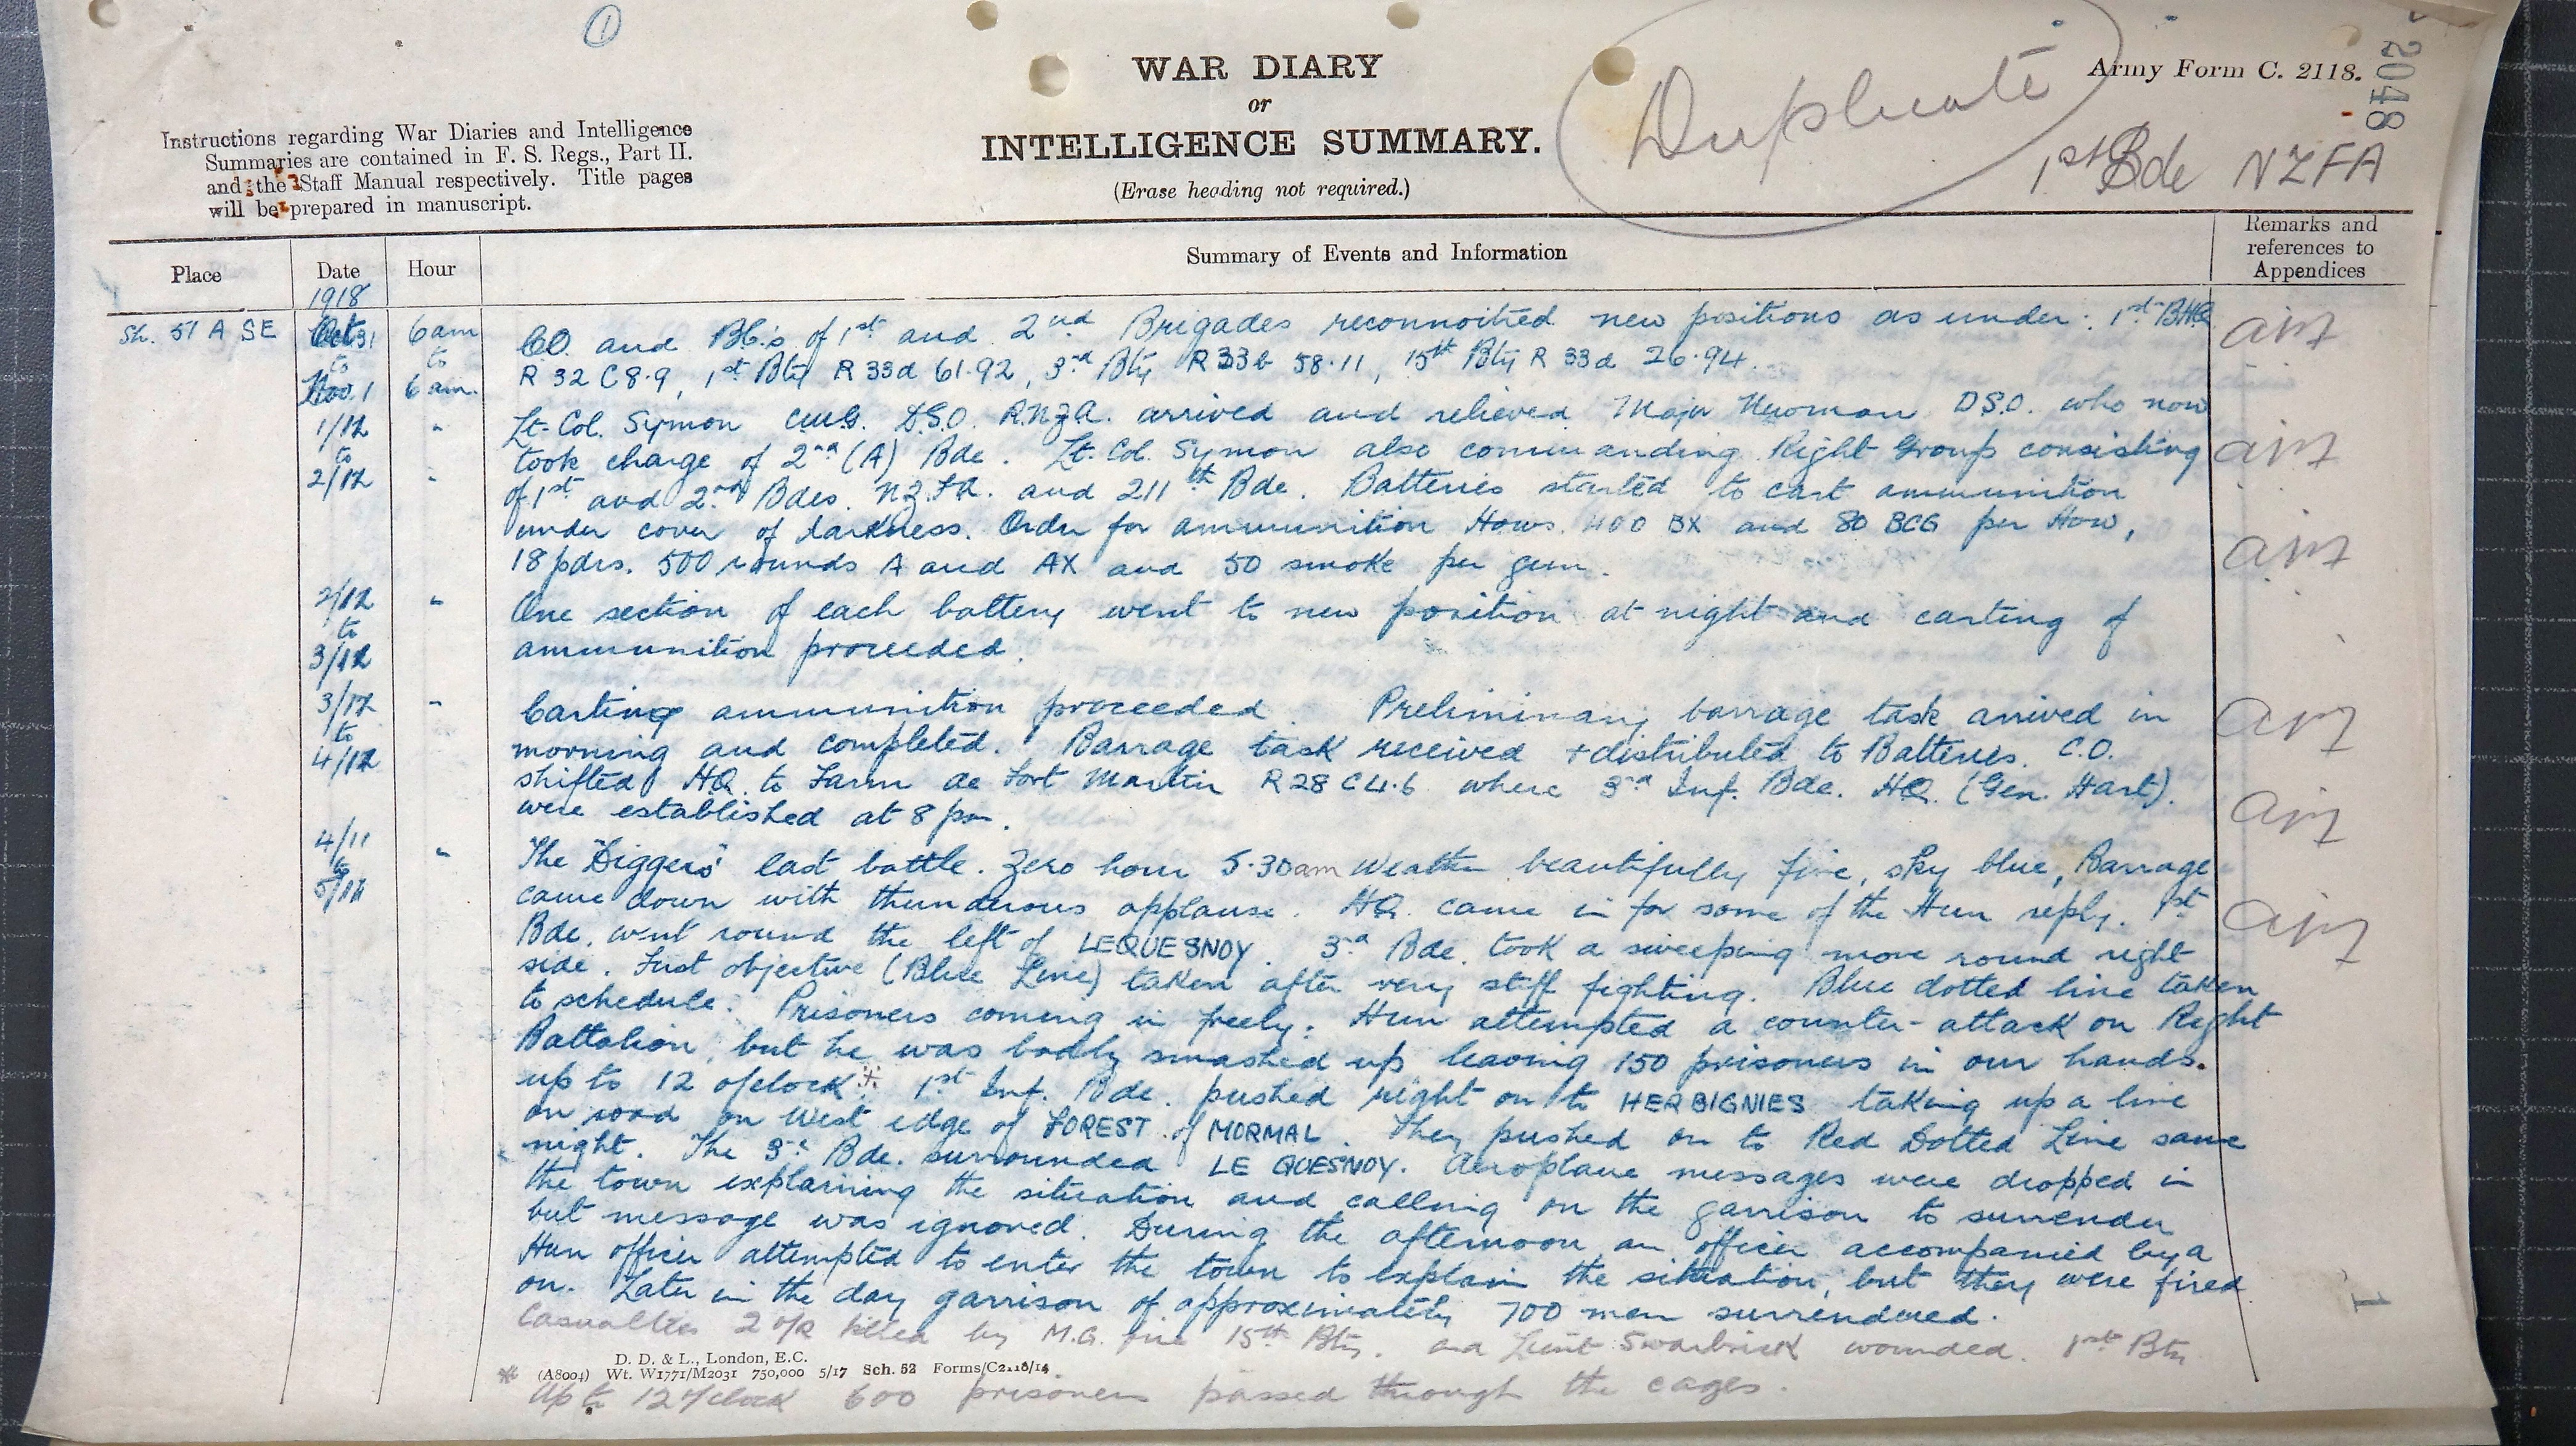 1
WAR DIARY
or
INTELLIGENCE SUMMARY.
(Erase heading not required.)
Duplicate
Army Form C. 2118.
2048
1st Bde NZFA
Instructions regarding War Diaries and Intelligence
Summaries are contained in F. S. Regs., Part II.
and the Staff Manual respectively. Title pages
will be prepared in manuscript.
Place Date Hour Summary of Events and Information Remarks and
references to
Appendices
1918
Sh. 51 A SE Oct 31 6 am CO. and BCs of 1st and 2nd Brigades reconnoitred new positions as under: 1st BHQ
to to R 32 C 8.9, 1st Bty R 33d 61.92, 3rd Bty R 33b 58.11, 15th Bty R 33d 26.94.
Nov. 1 6 am.
1/11 " Lt-Col. Symon CMG. DSO. RNZA. arrived and relieved Major Newman DSO. who now
to took charge of 2nd (A) Bde. Lt. Col. Symon also commanding Right Group consisting
2/11 " of 1st and 2nd Bdes. NZFA. and 211th Bde. Batteries started to cart ammunition
under cover of darkness. Order for ammunition Hows. 400 BX and 80 BCG per How,
18 pdrs. 500 rounds A and AX and 50 smoke per gun.
2/11 " One section of each battery went to new position at night and carting of
to ammunition proceeded.
3/11
3/11 " Carting ammunition proceeded. Preliminary barrage task arrived in
to morning and completed. Barrage task received + distributed to Batteries. C.O.
4/11 shifted HQ. to Farm de Fort Martin R 28 C 4.6 where 3rd Inf. Bde. HQ. (Gen. Hart).
were established at 8 pm.
4/11 " The "Diggers" last battle. Zero hour 5.30am Weather beautifully fine, sky blue, Barrage
to came down with thunderous applause. HQ. came in for some of the Hun reply. 1st
5/11 Bde. went round the left of LEQUESNOY. 3rd Bde. took a sweeping move round right
side. First objective (Blue Line) taken after very stiff fighting. Blue dotted line taken
to schedule. Prisoners coming in freely. Hun attempted a counter-attack on Right
Battalion, but he was badly smashed up leaving 150 prisoners in our hands.
up to 12 o/clock. 1st Inf. Bde. pushed right on to HERBIGNIES taking up a line
on road on West edge of FOREST of MORMAL. They pushed on to Red Dotted Line same
night. The 3rd Bde. surrounded LE QUESNOY. Aeroplane messages were dropped in
the town explaining the situation and calling on the garrison to surrender
but message was ignored. During the afternoon an officer accompanied by a
Hun officer attempted to enter the town to explain the situation, but they were fired
on. Later in the day garrison of approximately 700 men surrendered.
Casualties 2 o/R killed by M.G. fire 15th Bty. and Lieut Swarbrick wounded. 1st Bty
D. D. & L., London, E.C.
(A8004) Wt. W1771/M2031 750,000 5/17 Sch. 52 Forms/C2118/14
* Up to 12 o/clock 600 prisoners passed through the cages.
1